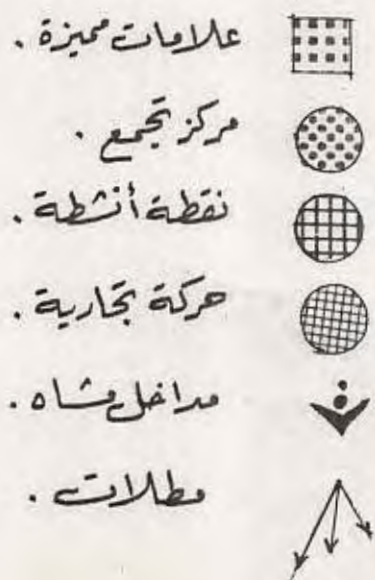 علامات مميزة .
مركز تجمع .
نقطة أنشطة .
حركة تجارية .
مداخل مشاه .
مطلات .